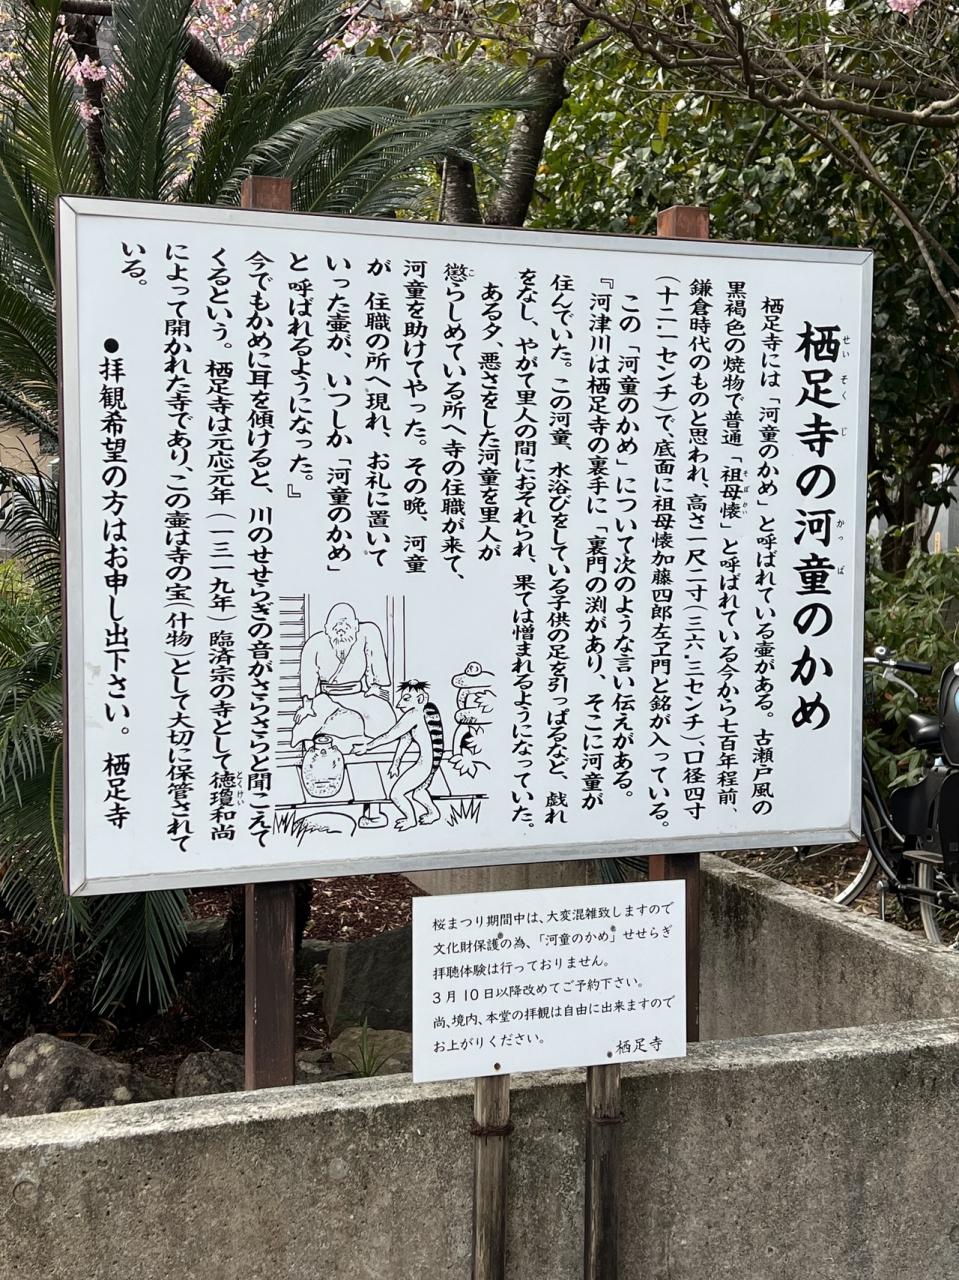 栖足寺の河童のかめ
せいそくじ
かっぱ
栖足寺には「河童のかめ」と呼ばれている壷がある。古瀬戸風の
黒褐色の焼物で普通「祖母懐」と呼ばれている今から七百年程前、
そぼかい
鎌倉時代のものと思われ、高さ一尺二寸(三六.三センチ)、口径四寸
(十二.一センチ)で、底面に祖母懐加藤四郎左ヱ門と銘が入っている。
この「河童のかめ」について次のような言い伝えがある。
『河津川は栖足寺の裏手に「裏門の渕があり、そこに河童が
住んでいた。この河童、水浴びをしている子供の足を引っぱるなど、戯れ
をなし、やがて里人の間におそれられ、果ては憎まれるようになっていた。
ある夕、悪さをした河童を里人が
懲らしめている所へ寺の住職が来て、
こ
河童を助けてやった。その晩、河童
が 住職の所へ現れ、お礼に置いて
いった壷が、いつしか「河童のかめ」
と呼ばれるようになった。』
今でもかめに耳を傾けると、川のせせらぎの音がさらさらと聞こえて
くるという。栖足寺は元応元年(一三一九年)臨済宗の寺として徳瓊和尚
とくけい
によって開かれた寺であり、この壷は寺の宝(什物)として大切に保管されて
いる。
●拝観希望の方はお申し出下さい。 栖足寺
桜まつり期間中は、大変混雑致しますので
文化財保護の為、「河童のかめ」せせらぎ
拝聴体験は行っておりません。
3月10日以降改めてご予約下さい。
尚、境内、本堂の拝観は自由に出来ますので
お上がりください。 栖足寺